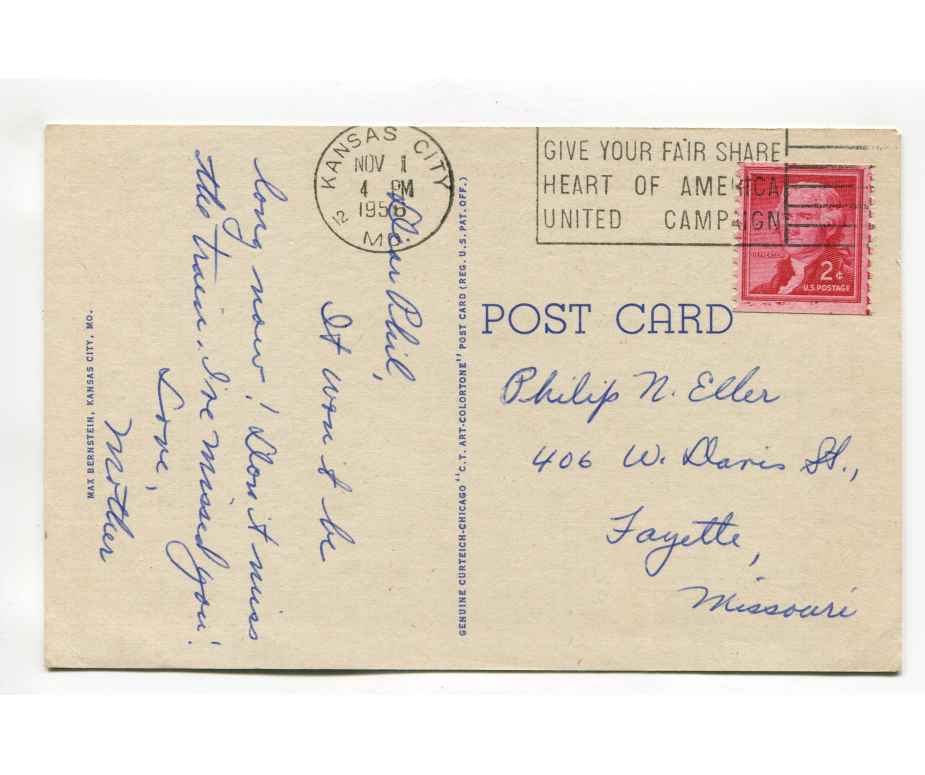 KANSAS CITY
12
NOV 1
4 PM
1956
MO.
GIVE YOUR FAIR SHARE
HEART OF AMERICA
UNITED CAMPAIGN
2¢
U.S. POSTAGE
POST CARD
Dear Phil,
It won't be
long now! Don't miss
the train. I've missed you!
Love,
Mother
Philip N. Eller
406 W. Davis St.,
Fayette,
Missouri
MAX BERNSTEIN, KANSAS CITY, MO.
GENUINE CURTEICH-CHICAGO "C.T. ART-COLORTONE" POST CARD (REG. U.S. PAT. OFF.)